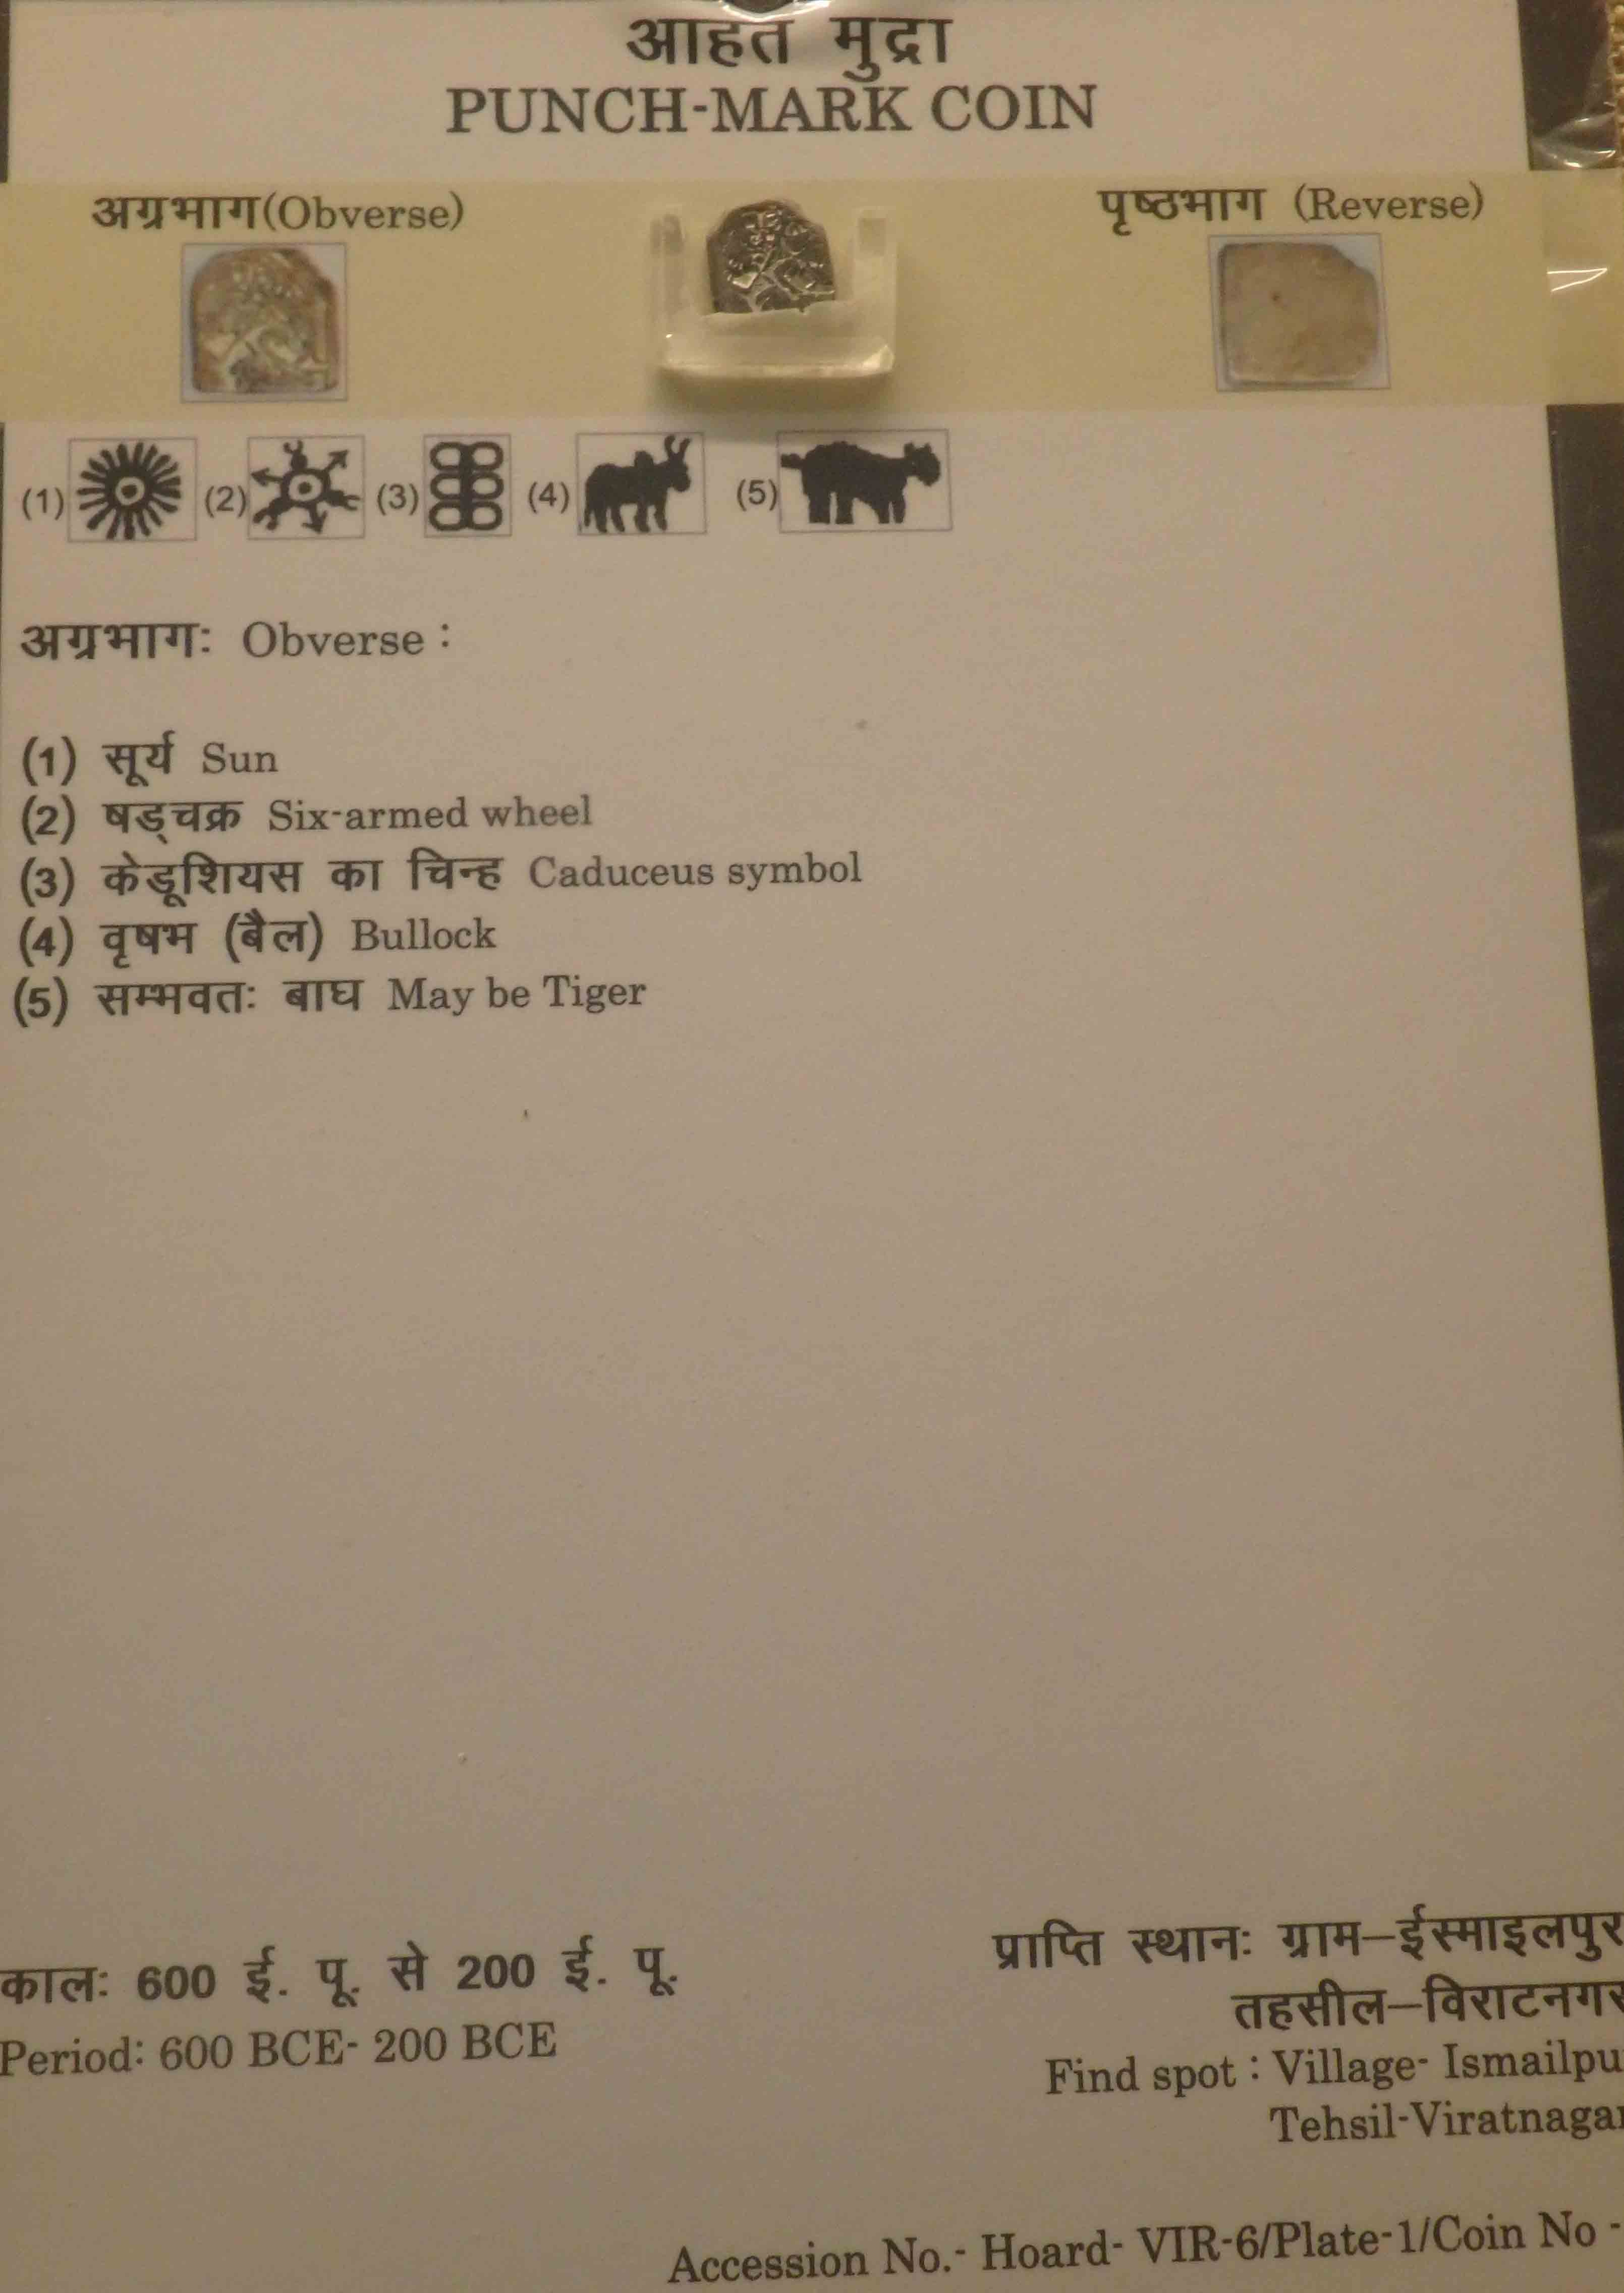 आहत मुद्रा
PUNCH-MARK COIN
अग्रभाग(Obverse)
पृष्ठभाग (Reverse)
(1) (2) (3) (4) (5)
अग्रभागः Obverse :
(1) सूर्य Sun
(2) षड्चक्र Six-armed wheel
(3) केडूशियस का चिन्ह Caduceus symbol
(4) वृषभ (बैल) Bullock
(5) सम्भवतः बाघ May be Tiger
कालः 600 ई. पू. से 200 ई. पू.
Period: 600 BCE- 200 BCE
प्राप्ति स्थानः ग्राम–ईस्माइलपुर
तहसील–विराटनगर
Find spot : Village- Ismailpu
Tehsil-Viratnagar
Accession No.- Hoard- VIR-6/Plate-1/Coin No -